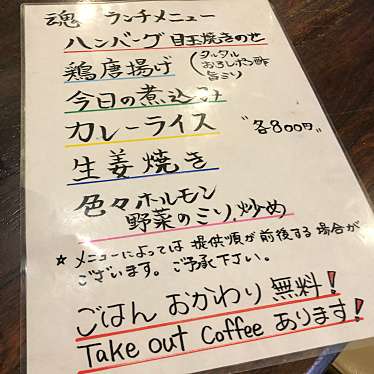 魂 ランチメニュー
ハンバーグ 目玉焼きのせ
鶏唐揚げ
タルタル
おろしポン酢
旨ミソ
今日の煮込み
カレーライス
"各800円"
生姜焼き
色々ホルモン
野菜のミソ炒め
☆ メニューによっては 提供順が前後する場合が
ございます。ご了承下さい。
ごはん おかわり 無料!
Take out Coffee あります!